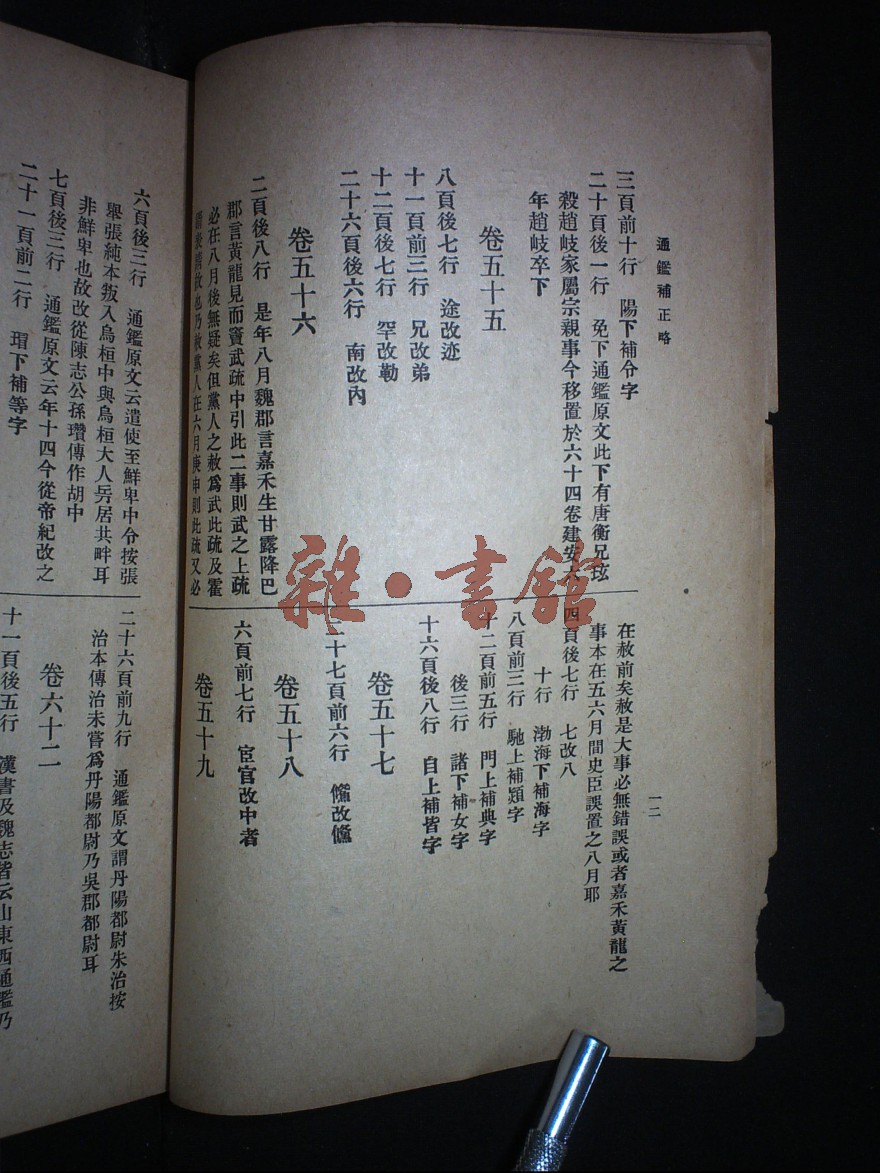 通鑑補正略
一二
三頁前十行　陽下補令字
二十頁後一行　免下通鑑原文此下有唐衡兄玹
殺趙岐家屬宗親事今移置於六十四卷建安六
年趙岐卒下
卷五十五
八頁後七行　途改迹
十一頁前三行　兄改弟
十二頁後七行　罕改勒
二十六頁後六行　南改內
卷五十六
二頁後八行　是年八月魏郡言嘉禾生甘露降巴
郡言黃龍見而竇武疏中引此二事則武之上疏
必在八月後無疑矣但黨人之赦爲武此疏及霍
諝表請故也乃赦黨人在六月庚申則此疏又必
在赦前矣赦是大事必無錯誤或者嘉禾黃龍之
事本在五六月間史臣誤置之八月耶
四頁後七行　七改八
十行　渤海下補海字
八頁前三行　馳上補潁字
十二頁前五行　門上補典字
後三行　諸下補女字
十六頁後八行　自上補皆字
卷五十七
二十七頁前六行　改
卷五十八
六頁前七行　宦官改中者
卷五十九
六頁後三行　通鑑原文云遣使至鮮卑中今按張
舉張純本叛入烏桓中與烏桓大人另居共畔耳
非鮮卑也故改從陳志公孫瓚傳作胡中
七頁後三行　通鑑原文云年十四今從帝紀改之
二十一頁前二行　瑁下補等字
二十六頁前九行　通鑑原文謂丹陽都尉朱治按
治本傳治未嘗爲丹陽都尉乃吳郡都尉耳
卷六十二
十一頁後五行　漢書及魏志皆云山東西通鑑乃
雜·書館